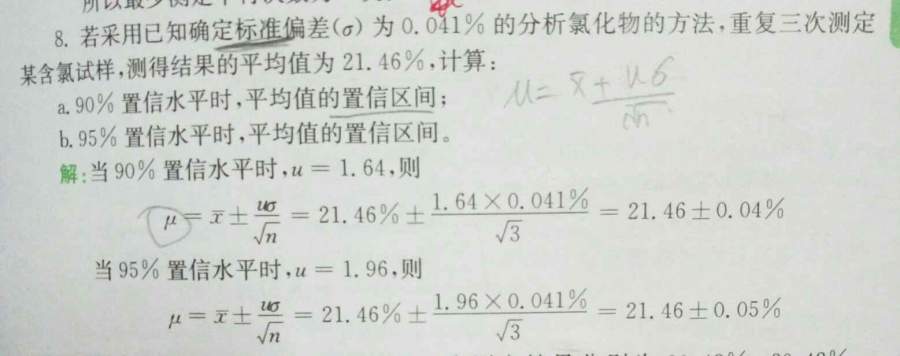 8. 若采用已知确定标准偏差(σ)为 0.041% 的分析氯化物的方法,重复三次测定
某含氯试样,测得结果的平均值为 21.46%,计算:
a. 90% 置信水平时,平均值的置信区间;
b. 95% 置信水平时,平均值的置信区间。
μ = x̄ ± uσ/√n
解:当 90% 置信水平时,u = 1.64,则
μ = x̄ ± uσ/√n = 21.46% ± 1.64×0.041%/√3 = 21.46±0.04%
当 95% 置信水平时,u = 1.96,则
μ = x̄ ± uσ/√n = 21.46% ± 1.96×0.041%/√3 = 21.46±0.05%